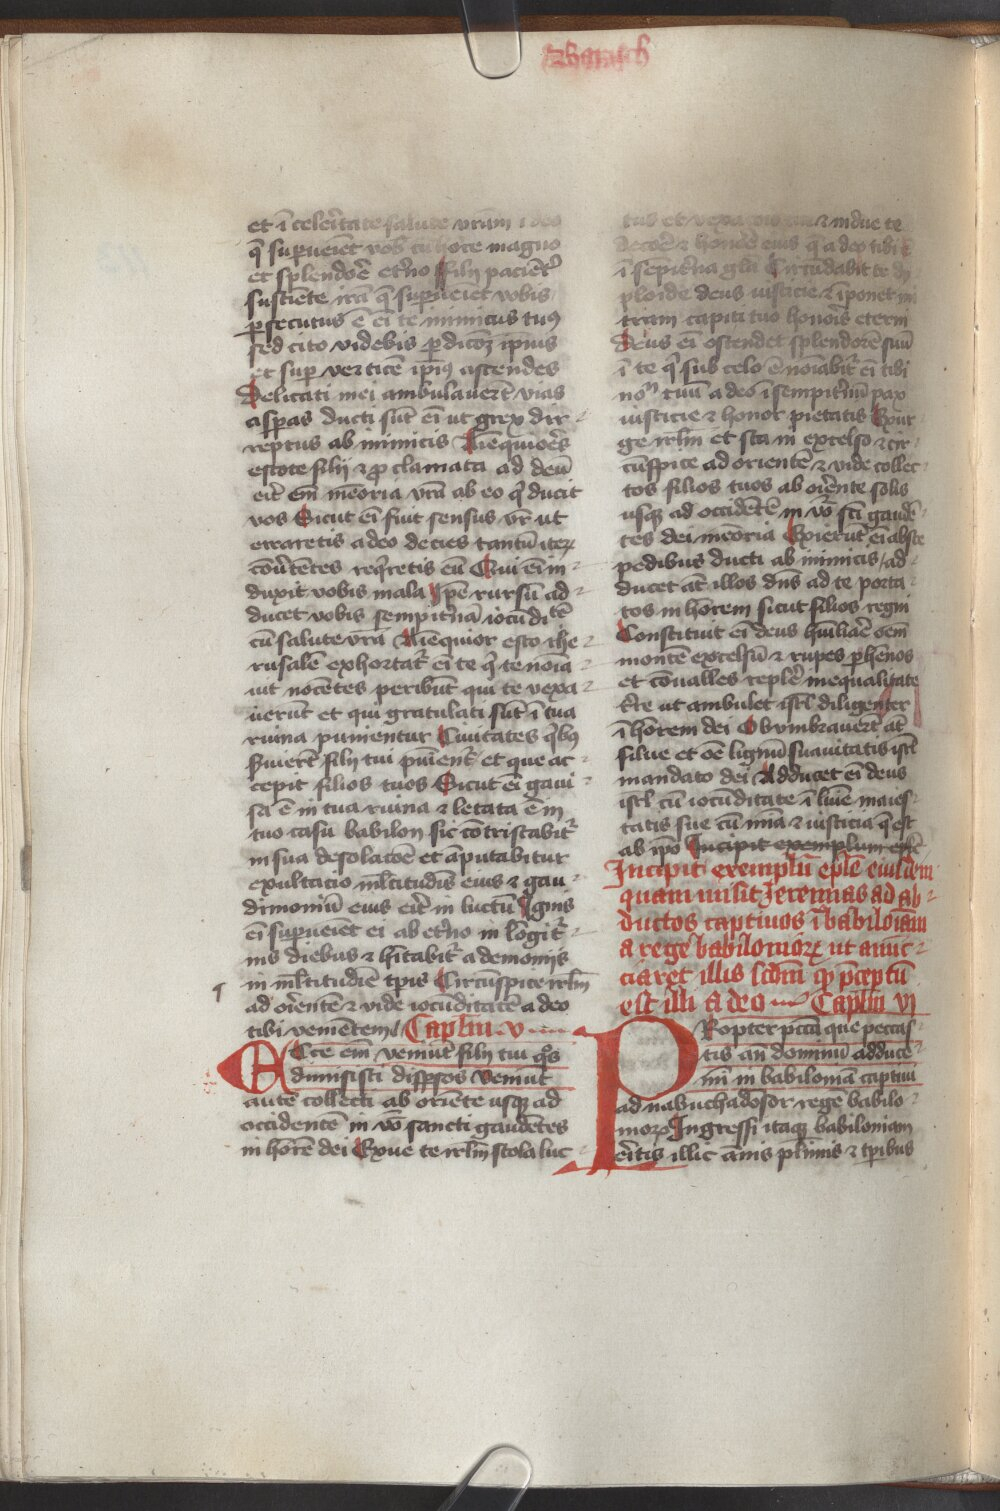 Baruch
et ī celeritate salute vr̄am ideo
q̄ supueīet vob̄ cū hōre magno
et splendoē et̄no Filij pacient̄
sustinēte irā q̄ supueīet vobis
ꝑsecutus ē eī te inimicus tuꝰ
sed cito videbis ꝑdicōꝫ ipius
et sup ver ticē ipīꝰ ascendes
Delicati mei ambulauer̄t vias
aspas ducti sūt eī ut grex dir-
reptus ab inimicis Aīequioēs
estote filij ⁊ ꝓclamata ad deū
eīt em̄ mēoria vr̄a ab eo q̄ ducit
vos Sicut eī fuit sensus vr̄ ut
erraretis a deo decies tantū iteꝝ
cōv̄tētes reqretis eū Qui eī in-
duxit vobis mala ip̄e rursū ad-
ducet vobis sempitnā iocūditē
cū salute vr̄a Aīequior esto ihe-
rusalē exhortat̄ eī te q̄ te noīa-
uit nocētes peribūt qui te vexa-
uerūt et qui gratulati sūt ī tua
ruina punientur Ciuitates q̄bꝰ
seruierūt filij tui pūient̄ et que ac-
cepit filios tuos Sicut eī gaui-
sa ē in tua ruina ⁊ letata ē in
tuo casu babilon sic cōtristabit̄
in sua desolacōe et āputabitur
exultatio ml̄titudīs eius ⁊ gau-
dimoniū eius eīt in luctū Ignis
eī supueīet ei ab et̄no in lōgit̄-
nis diebus ⁊ hītabit̄ a demonijs
in ml̄titudīe tp̄is Circūspice irlm̄
ad oīentē ⁊ vide iocūditatē a deo
tibi veniētem Caplm̄ v
Ecce em̄ veniūt filij tui q̄s
dimisisti disp̄sos Veniūt
autē collecti ab oriēte usqꝫ ad
occidentē in v̄o sancti gaudētes
in hōrē dei Exue te irlm̄ stola luc-
tus et vexacōis tue ⁊ indue te
decoē ⁊ honoē eius q̄ a deo tibi ē
ī sēpit̄na gl̄a Circūdabit te dy-
ploide deus iusticie ⁊ īponet mi-
tram capiti tuo honoīs eterni
Deus eī ostendet splendorē suū
ī te q̄ sub celo ē noīabit̄ eī tibi
noᵐ tuū a deo ī sempit̄nū pax
iusticie ⁊ honor pietatis Exur-
ge irlm̄ et sta in excelso ⁊ cir-
cūspice ad orientē ⁊ vide collec-
tos filios tuos ab oīente solis
usqꝫ ad occidētē in v̄o sc̄i gaudē-
tes dei mēoria Exierūt eī abs te
pedibus ducti ab inimicis ad-
ducet āt illos dn̄s ad te porta-
tos in hōrem sicut filios regni
Constituit eī deus hūiliāē oēm
montē excelsū ⁊ rupes ꝑhēnos
et cōualles replē inequalitate
t̄re ut ambulet isrl̄ diligenter
ī hōrem dei Obvmbrauerūt āt
silue et oē lignū suauitatis isrl̄
mandato dei Adducet eī deus
isrl̄ cū iocūditate ī lūīe maies-
tatis sue cū mīa ⁊ iusticia q̄ est
ab ip̄o Incipit exemplum eplē
Incipit exemplū eplē eiusdem
quam misit Jeremias ad ab-
ductos captiuos ī babiloīam
a rege babilonioꝝ ut annūc-
ciaret illis scd̄m qꝫ p̄ceptū
est illi a deo Caplm̄ vi
Propter pctā que peccas-
tis an̄ dominū adduce-
mī in babiloniā captiui
ad nabuchadosor regē babilo-
nioꝝ Ingressi itaqꝫ babiloniam
eītis illic ānis plīmis ⁊ tꝑibus